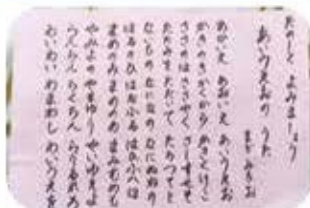 たのしく よみましょう
あいうえおの うた
まど・みちお
あかいえ あおいえ あいうえお
かきのき かくから かきくけこ
ささのは ささやく さしすせそ
たたみを たたいて たちつてと
なにもの なになの なにぬねの
はるのひ はなふる はひふへほ
まめのみ まめのめ まみむめも
やみよの やまゆり やいゆえよ
らんらん らくちん らりるれろ
わいわい わまわし わいうえを